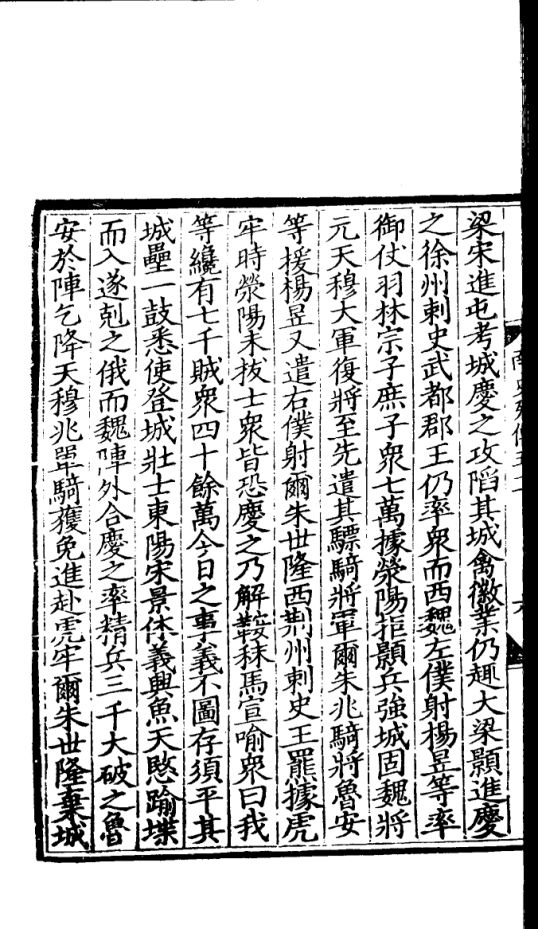 梁宋進屯考城慶之攻陷其城禽徽業仍趣大梁顥進慶
之徐州刺史武都郡王仍率衆而西魏左僕射楊昱等率
御仗羽林宗子庶子衆七萬據滎陽拒顥兵強城固魏將
元天穆大軍復將至先遣其驃騎將軍爾朱兆騎將魯安
等援楊昱又遣右僕射爾朱世隆西荆州刺史王羆據虎
牢時滎陽未拔士衆皆恐慶之乃解鞍秣馬宣喻衆曰我
等纔有七千賊衆四十餘萬今日之事義不圖存須平其
城壘一鼓悉使登城壯士東陽宋景休義興魚天愍踰堞
而入遂剋之俄而魏陣外合慶之率精兵三千大破之魯
安於陣乞降天穆兆單騎獲免進赴虎牢爾朱世隆棄城